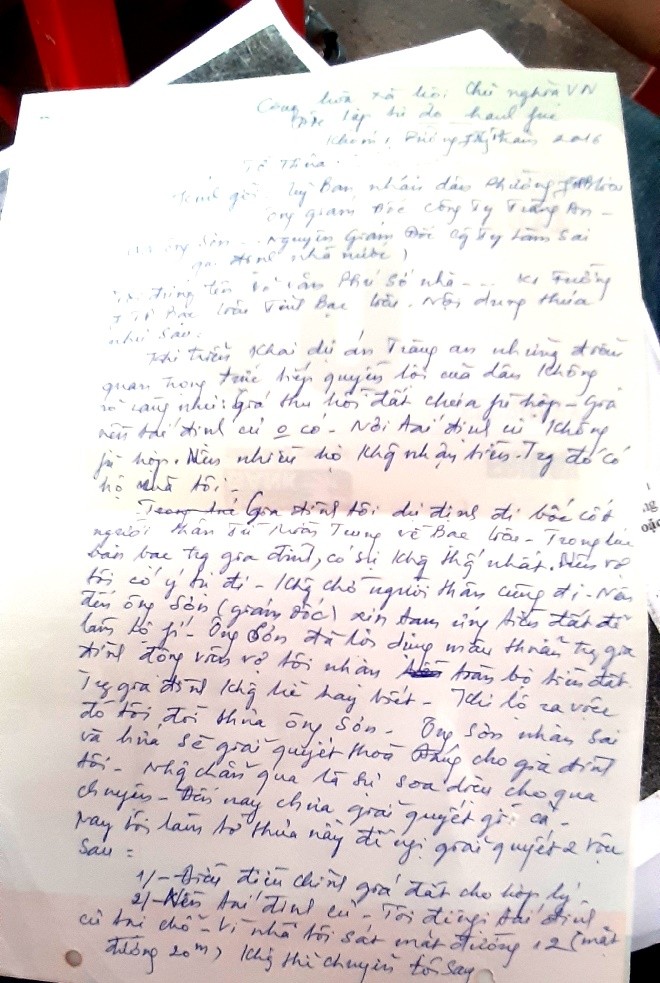 Cộng hòa xã hội Chủ nghĩa VN
Độc lập tự do hạnh fúc
Khóm 1, Phường tháng năm 2016
Tờ Thưa
Kính gởi Uỷ Ban nhân dân Phường
Ông giám Đốc Công Ty Tràng An -
ông Sơn - Nguyên Giám Đốc Cty Làm Sai
qui định nhà nước)
đứng tên Số nhà ... K1 Fường
TP Bạc Liêu Tỉnh Bạc Liêu. Nội dung thưa
như sau:
Khi triển khai dự án Tràng an những điều
quan trọng trực tiếp quyền lợi của dân Không
rõ ràng như: giá thu hồi đất chưa fù hợp - Giá
nền tái định cư o có - Nơi tái định cư không
fù hợp. Nên nhiều hộ Khg nhận tiền. Trg đó có
hộ nhà tôi -
Gia đình tôi dự định đi bốc cốt
người thân Từ Miền Trung về Bạc Liêu - Trong lúc
bàn bạc trg gia đình, có sự Khg thg nhất. Nên vợ
tôi cố ý tự đi - Khg chờ người thân cùng đi - Nên
đến ông Sơn (giám đốc) xin tạm ứng tiền đất để
làm lộ fí - Ông Sơn đã lợi dụng mâu thuẫn trg gia
đình động viên vợ tôi nhận toàn bộ tiền đất
Trg gia đình Khg hề hay biết - Khi lộ ra việc
đó tôi đòi thưa ông Sơn - Ông Sơn nhận sai
và hứa sẽ giải quyết thỏa đáng cho gia đình
tôi - Nhg chẳng qua là sự xoa dịu cho qua
chuyện - Đến nay chưa giải quyết gì cả -
Nay tôi làm tờ thưa này đề nghị giải quyết 2 việc
sau:
1/- điều chỉnh giá đất cho hợp lý
2/- Nền tái định cư - Tôi đề nghị tái định
cư tại chỗ - Vì nhà tôi sát mặt đường 12 (mặt
đường 20m) Khg thể chuyển tôi sang